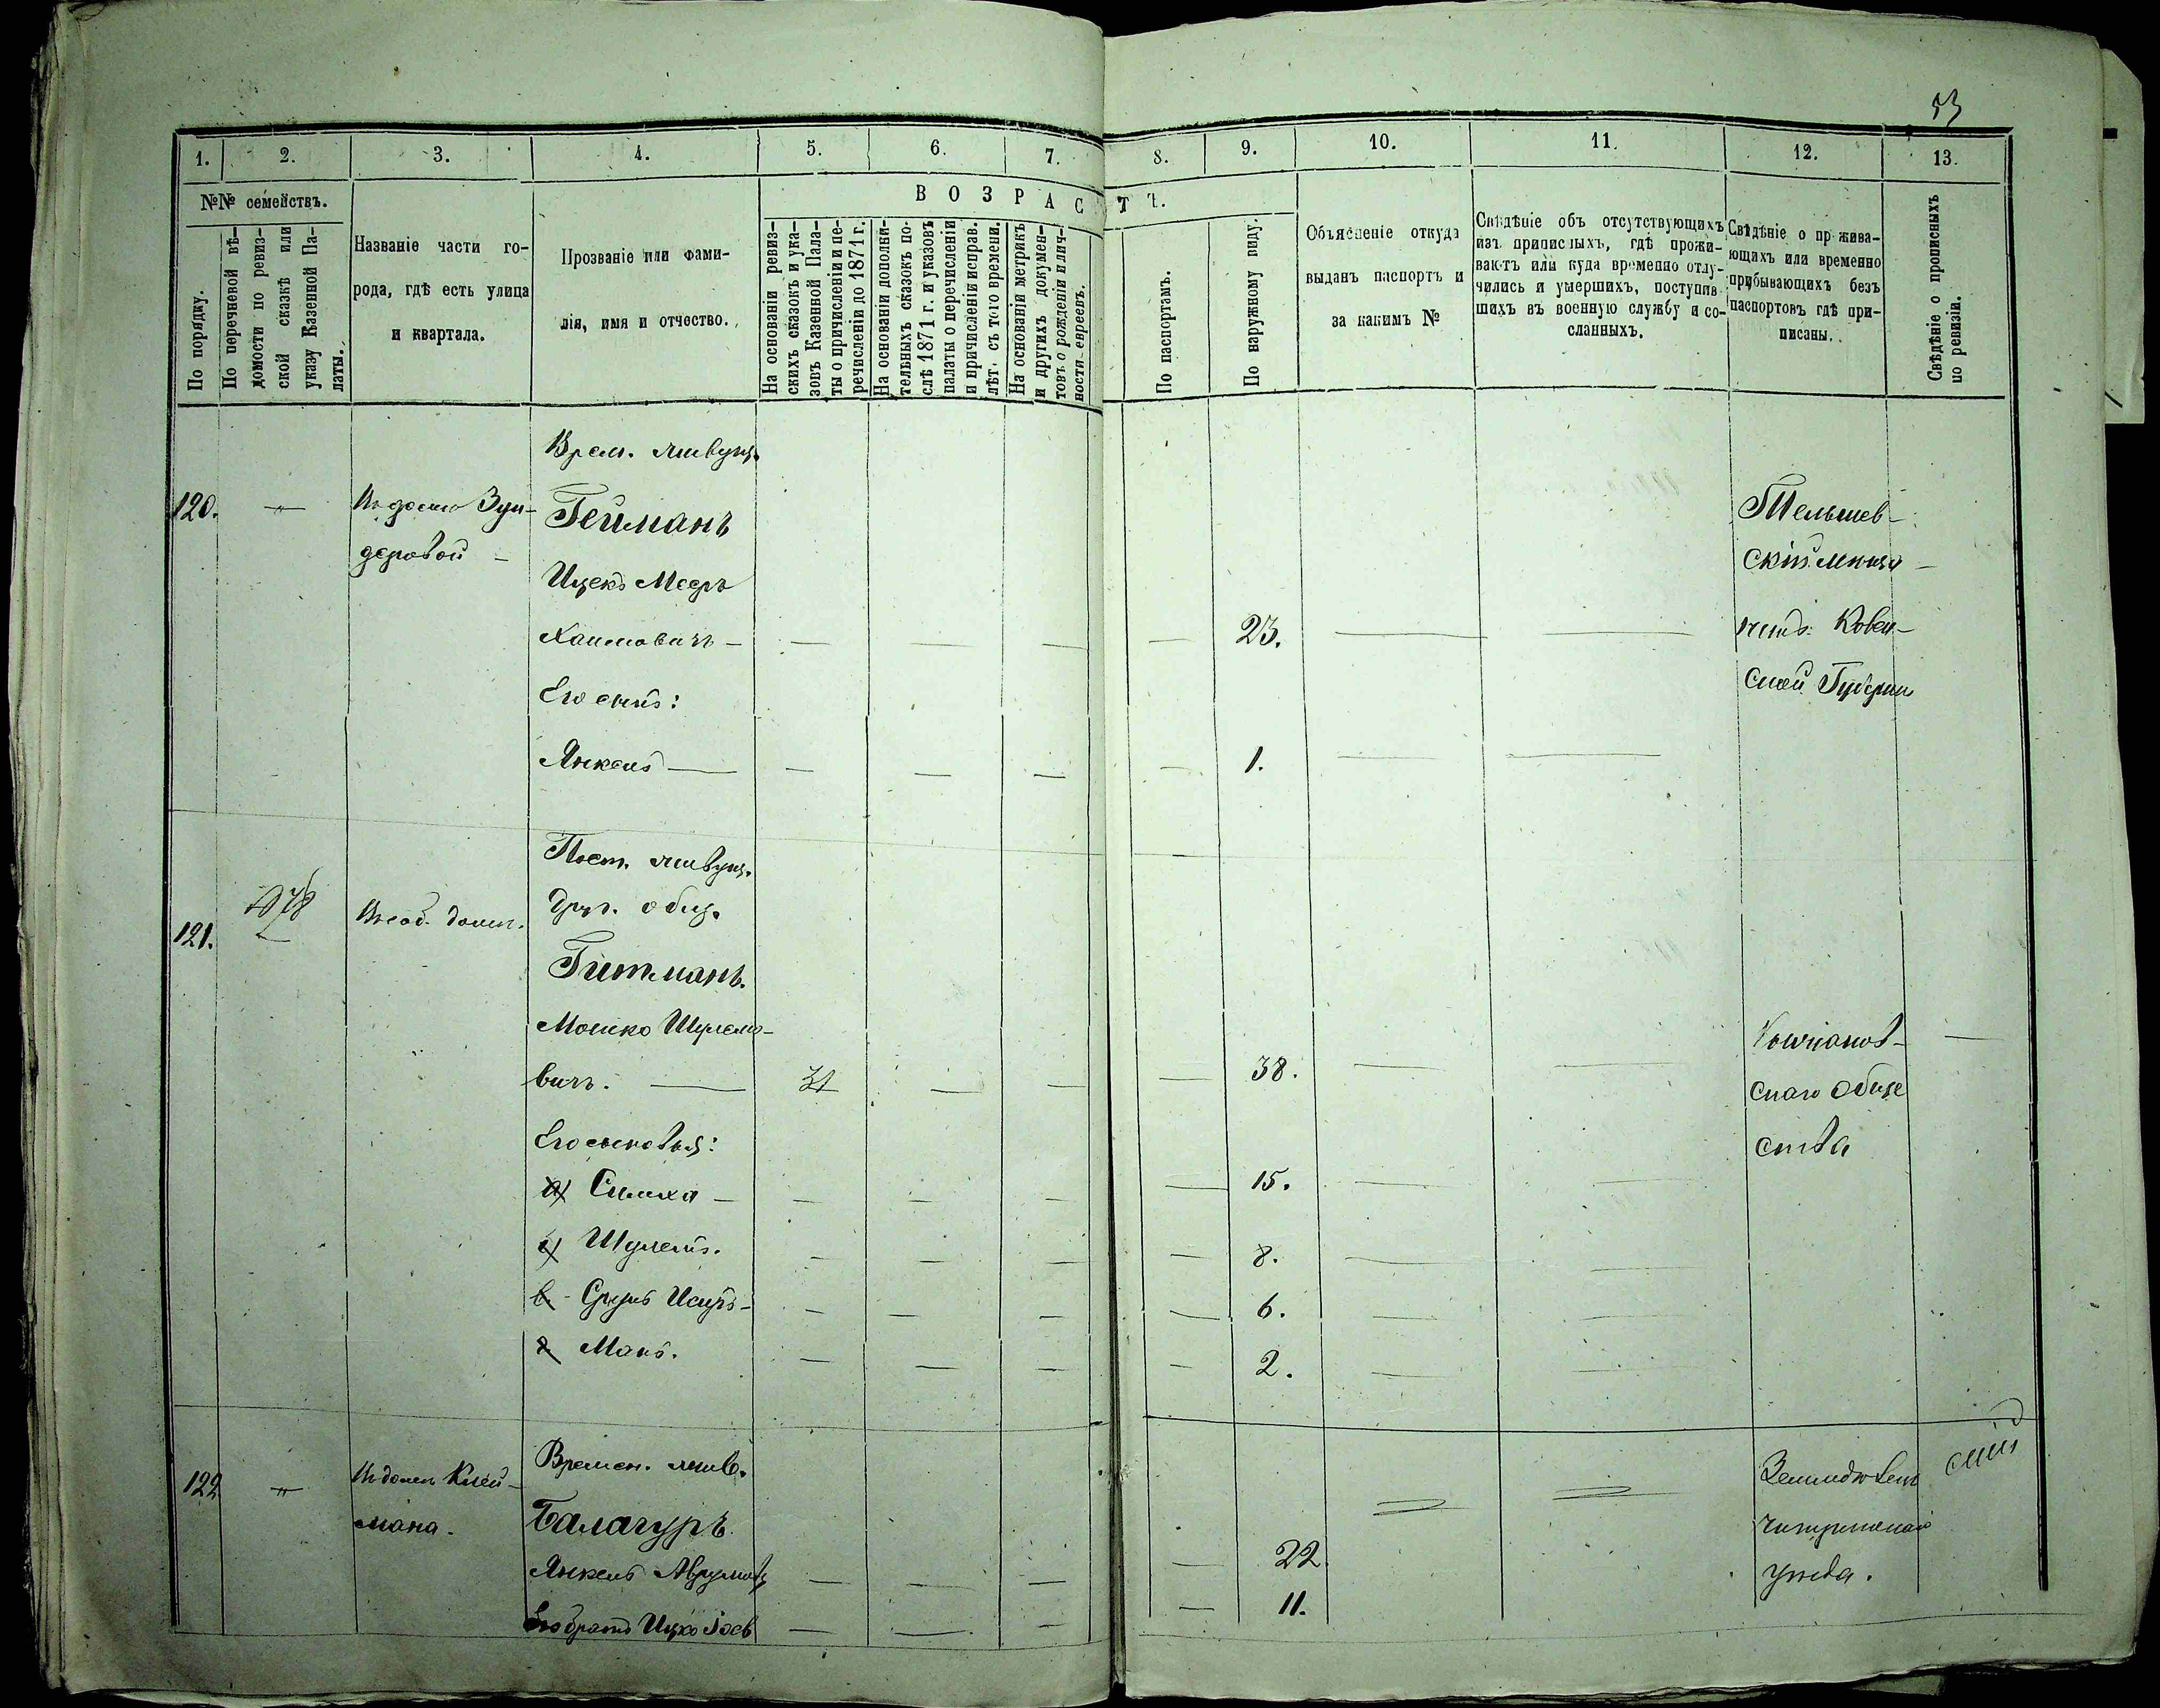 53
1. 2. 3. 4. 5. 6. 7. 8. 9. 10. 11. 12. 13.
№№ семействъ.
По порядку.
По перечневой вѣ-
домости по ревиз-
ской сказкѣ или
указу Казенной Па-
латы.
Названіе части го-
рода, гдѣ есть улица
и квартала.
Прозваніе или фами-
лія, имя и отчество.
ВОЗРАСТЪ.
На основаніи ревиз-
скихъ сказокъ и ука-
зовъ Казенной Пала-
ты о причисленіи и пе-
речисленіи до 1871 г.
На основаніи дополни-
тельныхъ сказокъ по-
слѣ 1871 г. и указовъ
палаты о перечисленіи
и причисленіи исправ.
лѣт. съ того времени.
На основаніи метрикъ
и другихъ докумен-
товъ о рожденіи и лич-
ности евреевъ.
По паспортамъ.
По наружному виду.
Объясненіе откуда
выданъ паспортъ и
за какимъ №
Свѣдѣніе объ отсутствующихъ
изъ приписныхъ, гдѣ прожи-
ваютъ или куда временно отлу-
чились и умершихъ, поступив-
шихъ въ военную службу и со-
сланныхъ.
Свѣдѣніе о прожива-
ющихъ или временно
прибывающихъ безъ
паспортовъ гдѣ при-
писаны.
Свѣдѣніе о прописныхъ
по ревизіи.
Врем. живущ.
120. — Въ домѣ Зун-
деровой
Гейманъ
Ицекъ Мееръ
Хаимовичъ — 23.
Его сынъ:
Янкель — 1.
Тельшев-
скій мѣща-
нинъ Ковен-
ской Губерніи
Пост. живущ.
121. Въ соб. домѣ.
друг. общ.
Гитманъ.
Мошко Шулемо-
вичъ. — 31 38.
Его сыновья:
а) Симха — 15.
б) Шулемъ. 8.
в Сруль Исиръ — 6.
г Манъ. 2.
скаго Обще
ства
Времен. жив.
122 — Въ домѣ Клей-
мана.
Балагуръ.
Янкель Аврумов 22
Его братъ Ицко Іосъ 11.
уѣзда.